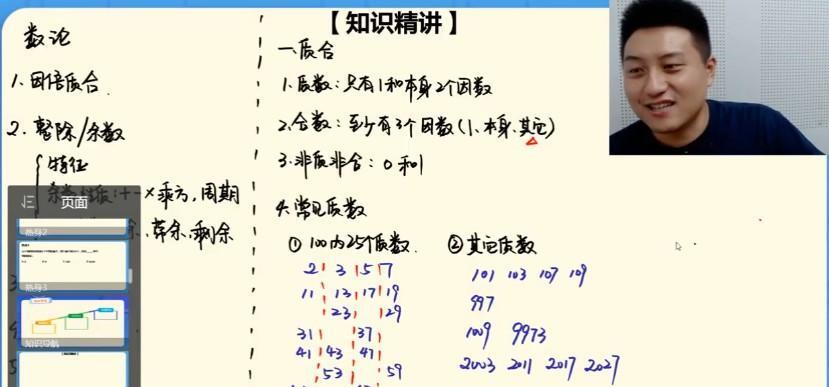 【知识精讲】
数论
1. 因倍质合
2. 整除/余数
特征
余数性质：+-×乘方，周期
余、弃余、剩余
一、质合
1. 质数：只有1和本身2个因数
2. 合数：至少有3个因数（1、本身、其它）
3. 非质非合：0和1
4. 常见质数
① 100内25个质数
2 3 5 7
11 13 17 19
23 29
31 37
41 43 47
53 59
② 其它质数
101 103 107 109
997
1009 9973
2003 2011 2017 2027
页面
热身2
热身3
知识导航